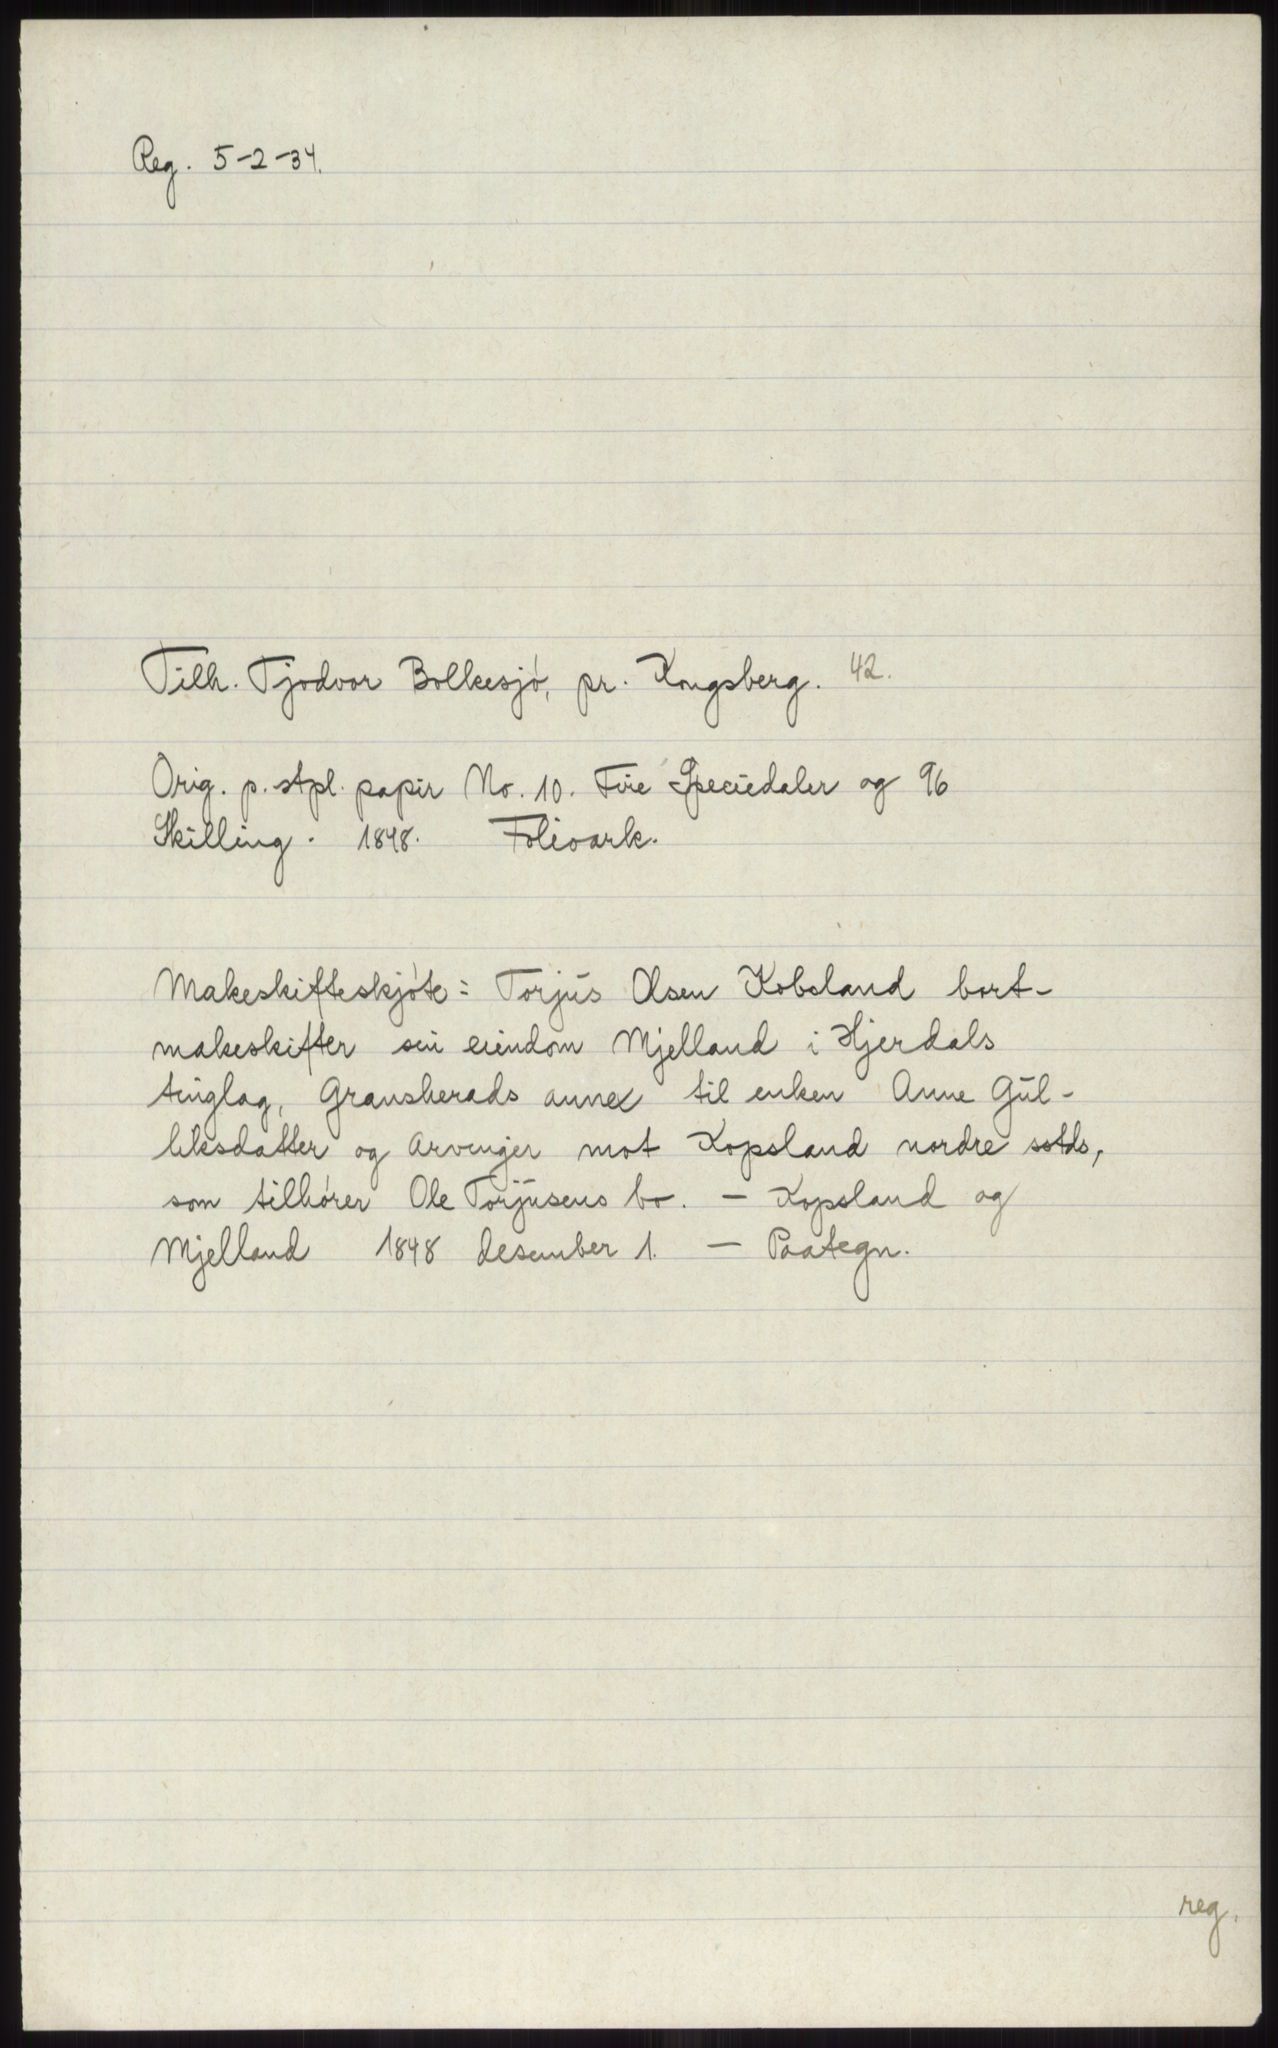 Reg. 5-2-34.
Tilh. Tjodvor Bolkesjø, pr. Kongsberg. 42.
Orig. p. stpl. papir No. 10. Fire Speciedaler og 96
Skilling. 1848. Folioark.
Makeskifteskjøte: Torjus Olsen Kobsland bort-
makeskifter sin eiendom Mjelland i Hjerdals
tinglag, Gransherads annex til enken Anne Gul-
liksdatter og arvinger mot Kopsland nordre sstds,
som tilhører Ole Torjusens bo. - Kopsland og
Mjelland 1848 desember 1. - Paategn.
reg.